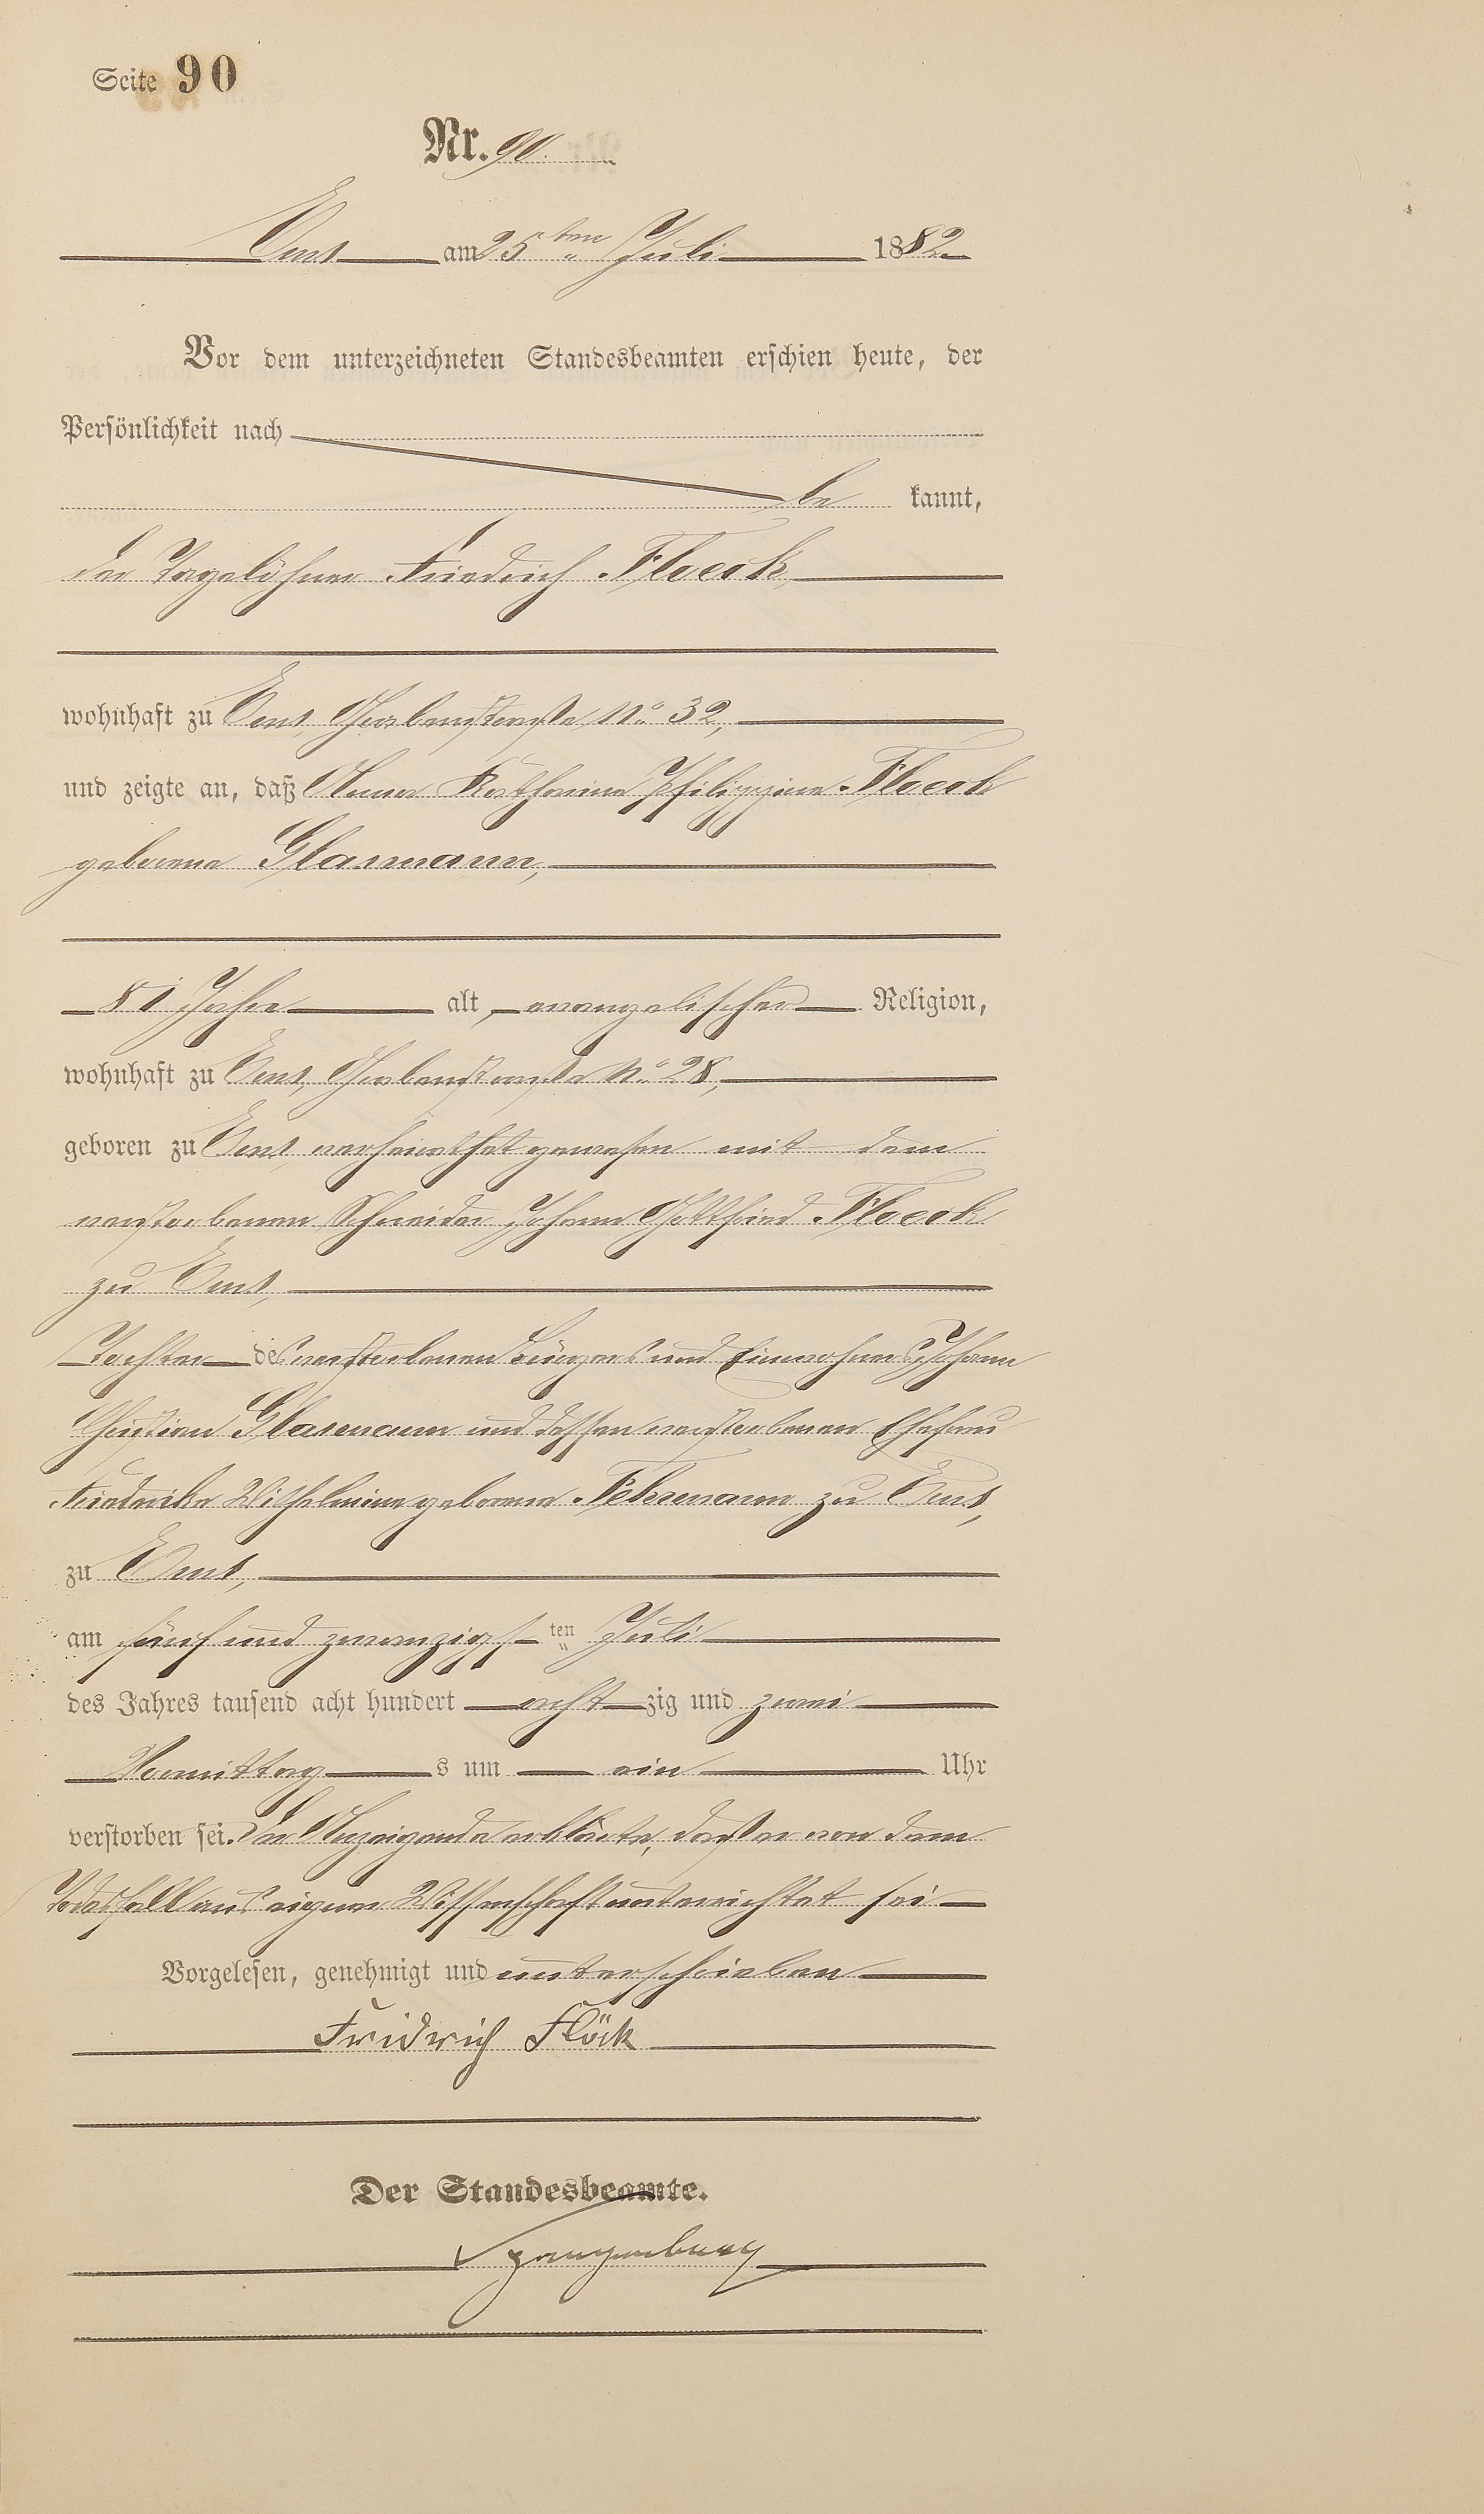 Seite 90
Nr. 90.
Ems am 25ten Juli 1882
Vor dem unterzeichneten Standesbeamten erschien heute, der
Persönlichkeit nach
be kannt,
der Tagelöhner Friedrich Floeck,
wohnhaft zu Ems, No 32,
und zeigte an, daß Anna Katharina Philippine Floeck
geborene Glasmann,
81 Jahre alt, evangelischer Religion,
wohnhaft zu Ems, No 28,
geboren zu Ems, verheirathet gewesen mit dem
verstorbenen Schneider Johann Gottfried Floeck
zu Ems,
Tochter des verstorbenen Bürgers und Einwohners Johann
Christian Glasmann und dessen verstorbenen Ehefrau
Friederike Wilhelmine geborene Fehrmann zu Ems,
zu Ems,
am fünf und zwanzigsten Juli
des Jahres tausend acht hundert acht zig und zwei
Vormittag s um ein Uhr
verstorben sei. Der Anzeigende erklärte, daß er von dem
Todesfall aus eigener Wissenschaft unterrichtet sei
Vorgelesen, genehmigt und unterschrieben
Fridrich Flöck
Der Standesbeamte.
Spangenberg